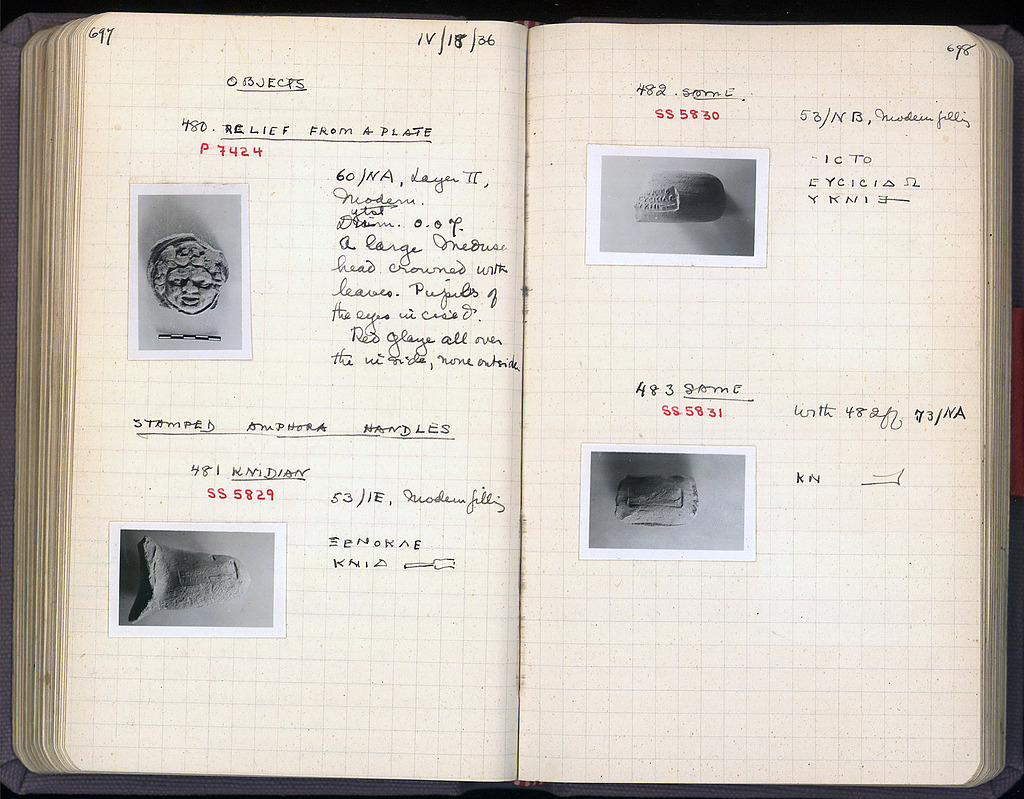 697
IV/18/36
OBJECTS
480. RELIEF FROM A PLATE
P 7424
60/NA, Layer II,
Modern.
Dim. 0.07.
A large Medusa
head crowned with
leaves. Pupils of
the eyes incised.
Red glaze all over
the inside, none outside
STAMPED AMPHORA HANDLES
481 KNIDIAN
SS 5829
53/IE, Modern filling
ΞΕΝΟΚΛΕ
ΚΝΙΔ
698
482. SAME.
SS 5830
53/NB, Modern filling
-ΙCΤΟ
ΕΥCΙCΙΔ Ω
Υ ΚΝΙ
483 SAME
SS 5831
With 482 73/NA
ΚΝ